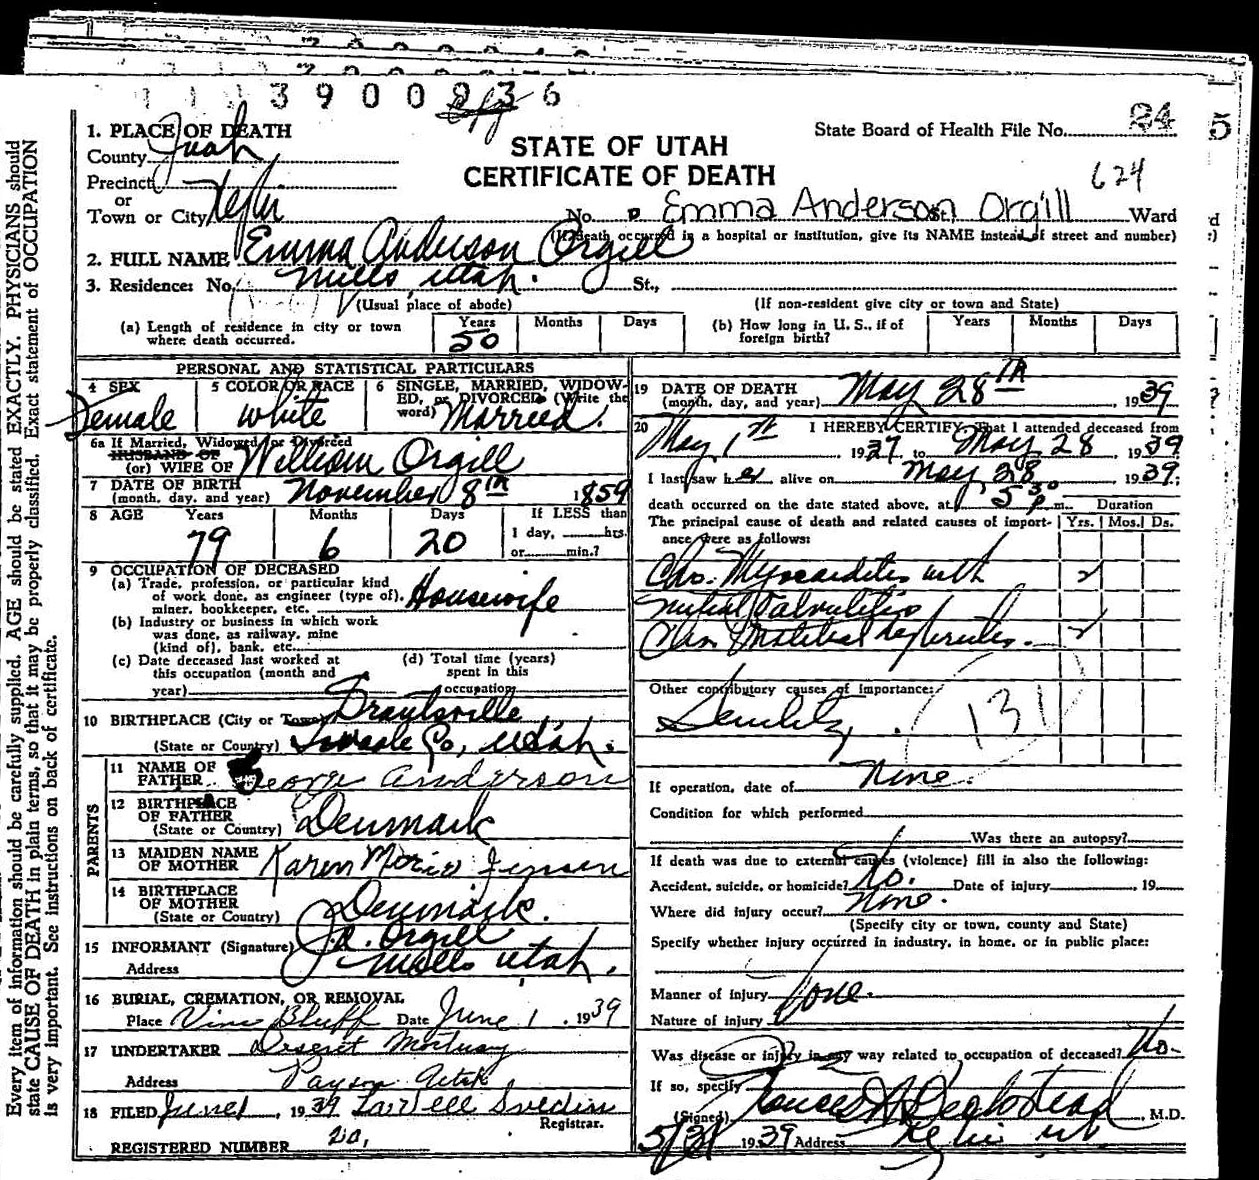 1 1 1 3 9 0 0 0 3 6
STATE OF UTAH
CERTIFICATE OF DEATH
State Board of Health File No. 24
624
1. PLACE OF DEATH
County Juab
Precinct
or
Town or City Nephi No. Emma Anderson Orgill St. Ward
(If death occurred in a hospital or institution, give its NAME instead of street and number)
2. FULL NAME Emma Anderson Orgill
3. Residence: No. Mills, Utah. St.,
(Usual place of abode) (If non-resident give city or town and State)
(a) Length of residence in city or town where death occurred. Years 50 Months Days
(b) How long in U. S., if of foreign birth? Years Months Days
PERSONAL AND STATISTICAL PARTICULARS
4 SEX Female
5 COLOR OR RACE white
6 SINGLE, MARRIED, WIDOWED, or DIVORCED (Write the word) Married.
6a If Married, Widowed, or Divorced
HUSBAND OF
(or) WIFE OF William Orgill
7 DATE OF BIRTH
(month, day, and year) November 8th 1859
8 AGE Years 79 Months 6 Days 20
If LESS than
1 day, hrs.
or min.?
9 OCCUPATION OF DECEASED
(a) Trade, profession, or particular kind
of work done, as engineer (type of),
miner, bookkeeper, etc. Housewife
(b) Industry or business in which work
was done, as railway, mine
(kind of), bank, etc.
(c) Date deceased last worked at
this occupation (month and
year)
(d) Total time (years)
spent in this
occupation
10 BIRTHPLACE (City or Town)
(State or Country) Co, Utah.
PARENTS
11 NAME OF
FATHER George Anderson
12 BIRTHPLACE
OF FATHER
(State or Country) Denmark
13 MAIDEN NAME
OF MOTHER Karen Jensen
14 BIRTHPLACE
OF MOTHER
(State or Country) Denmark.
15 INFORMANT (Signature) Orgill
Address Mills Utah.
16 BURIAL, CREMATION, OR REMOVAL
Place Vine Bluff Date June 1, 1939
17 UNDERTAKER Deseret Mortuary
Address Payson Utah
18 FILED June 1, 1939 LaVelle Svedin
Registrar.
REGISTERED NUMBER 20,
19 DATE OF DEATH
(month, day, and year) May 28th, 1939
20 I HEREBY CERTIFY, That I attended deceased from
May 1st, 1937 to May 28, 1939
I last saw her alive on May 28, 1939;
death occurred on the date stated above, at 5 30 p m. Duration
The principal cause of death and related causes of importance were as follows: Yrs. Mos. Ds.
Chr. Myocarditis with
Mitral Valvulitis
Chr.
Other contributory causes of importance:
Senility.
131
If operation, date of None.
Condition for which performed
Was there an autopsy?
If death was due to external causes (violence) fill in also the following:
Accident, suicide, or homicide? No. Date of injury , 19
Where did injury occur? None.
(Specify city or town, county and State)
Specify whether injury occurred in industry, in home, or in public place:
Manner of injury None.
Nature of injury
Was disease or injury in any way related to occupation of deceased? No.
If so, specify
(Signed) , M.D.
5/31 1939 Address Nephi Ut.
Every item of information should be carefully supplied. AGE should be stated EXACTLY. PHYSICIANS should
state CAUSE OF DEATH in plain terms, so that it may be properly classified. Exact statement of OCCUPATION
is very important. See instructions on back of certificate.